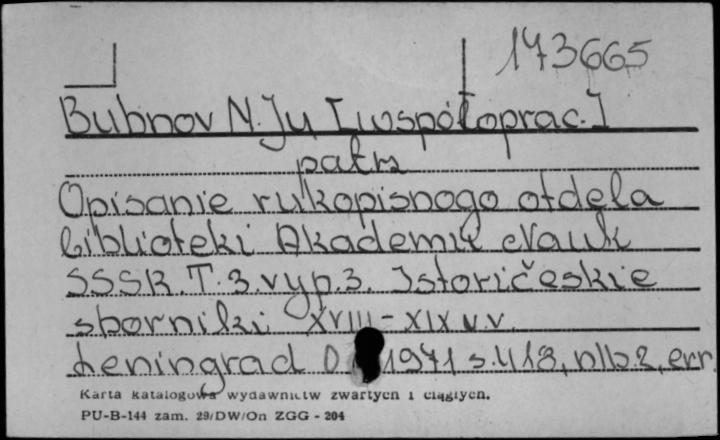 173665
Bubnov N.Ju [współoprac.]
patrz
Opisanie rukopisnogo otdela
biblioteki Akademii Nauk
SSSR T.3.vyp.3. Istoričeskie
sborniki XVIII-XIX v.v.
Leningrad 1971 s.418, nlb2, err.
Karta katalogowa wydawnictw zwartych i ciągłych.
PU-B-144 zam. 29/DW/On ZGG - 204